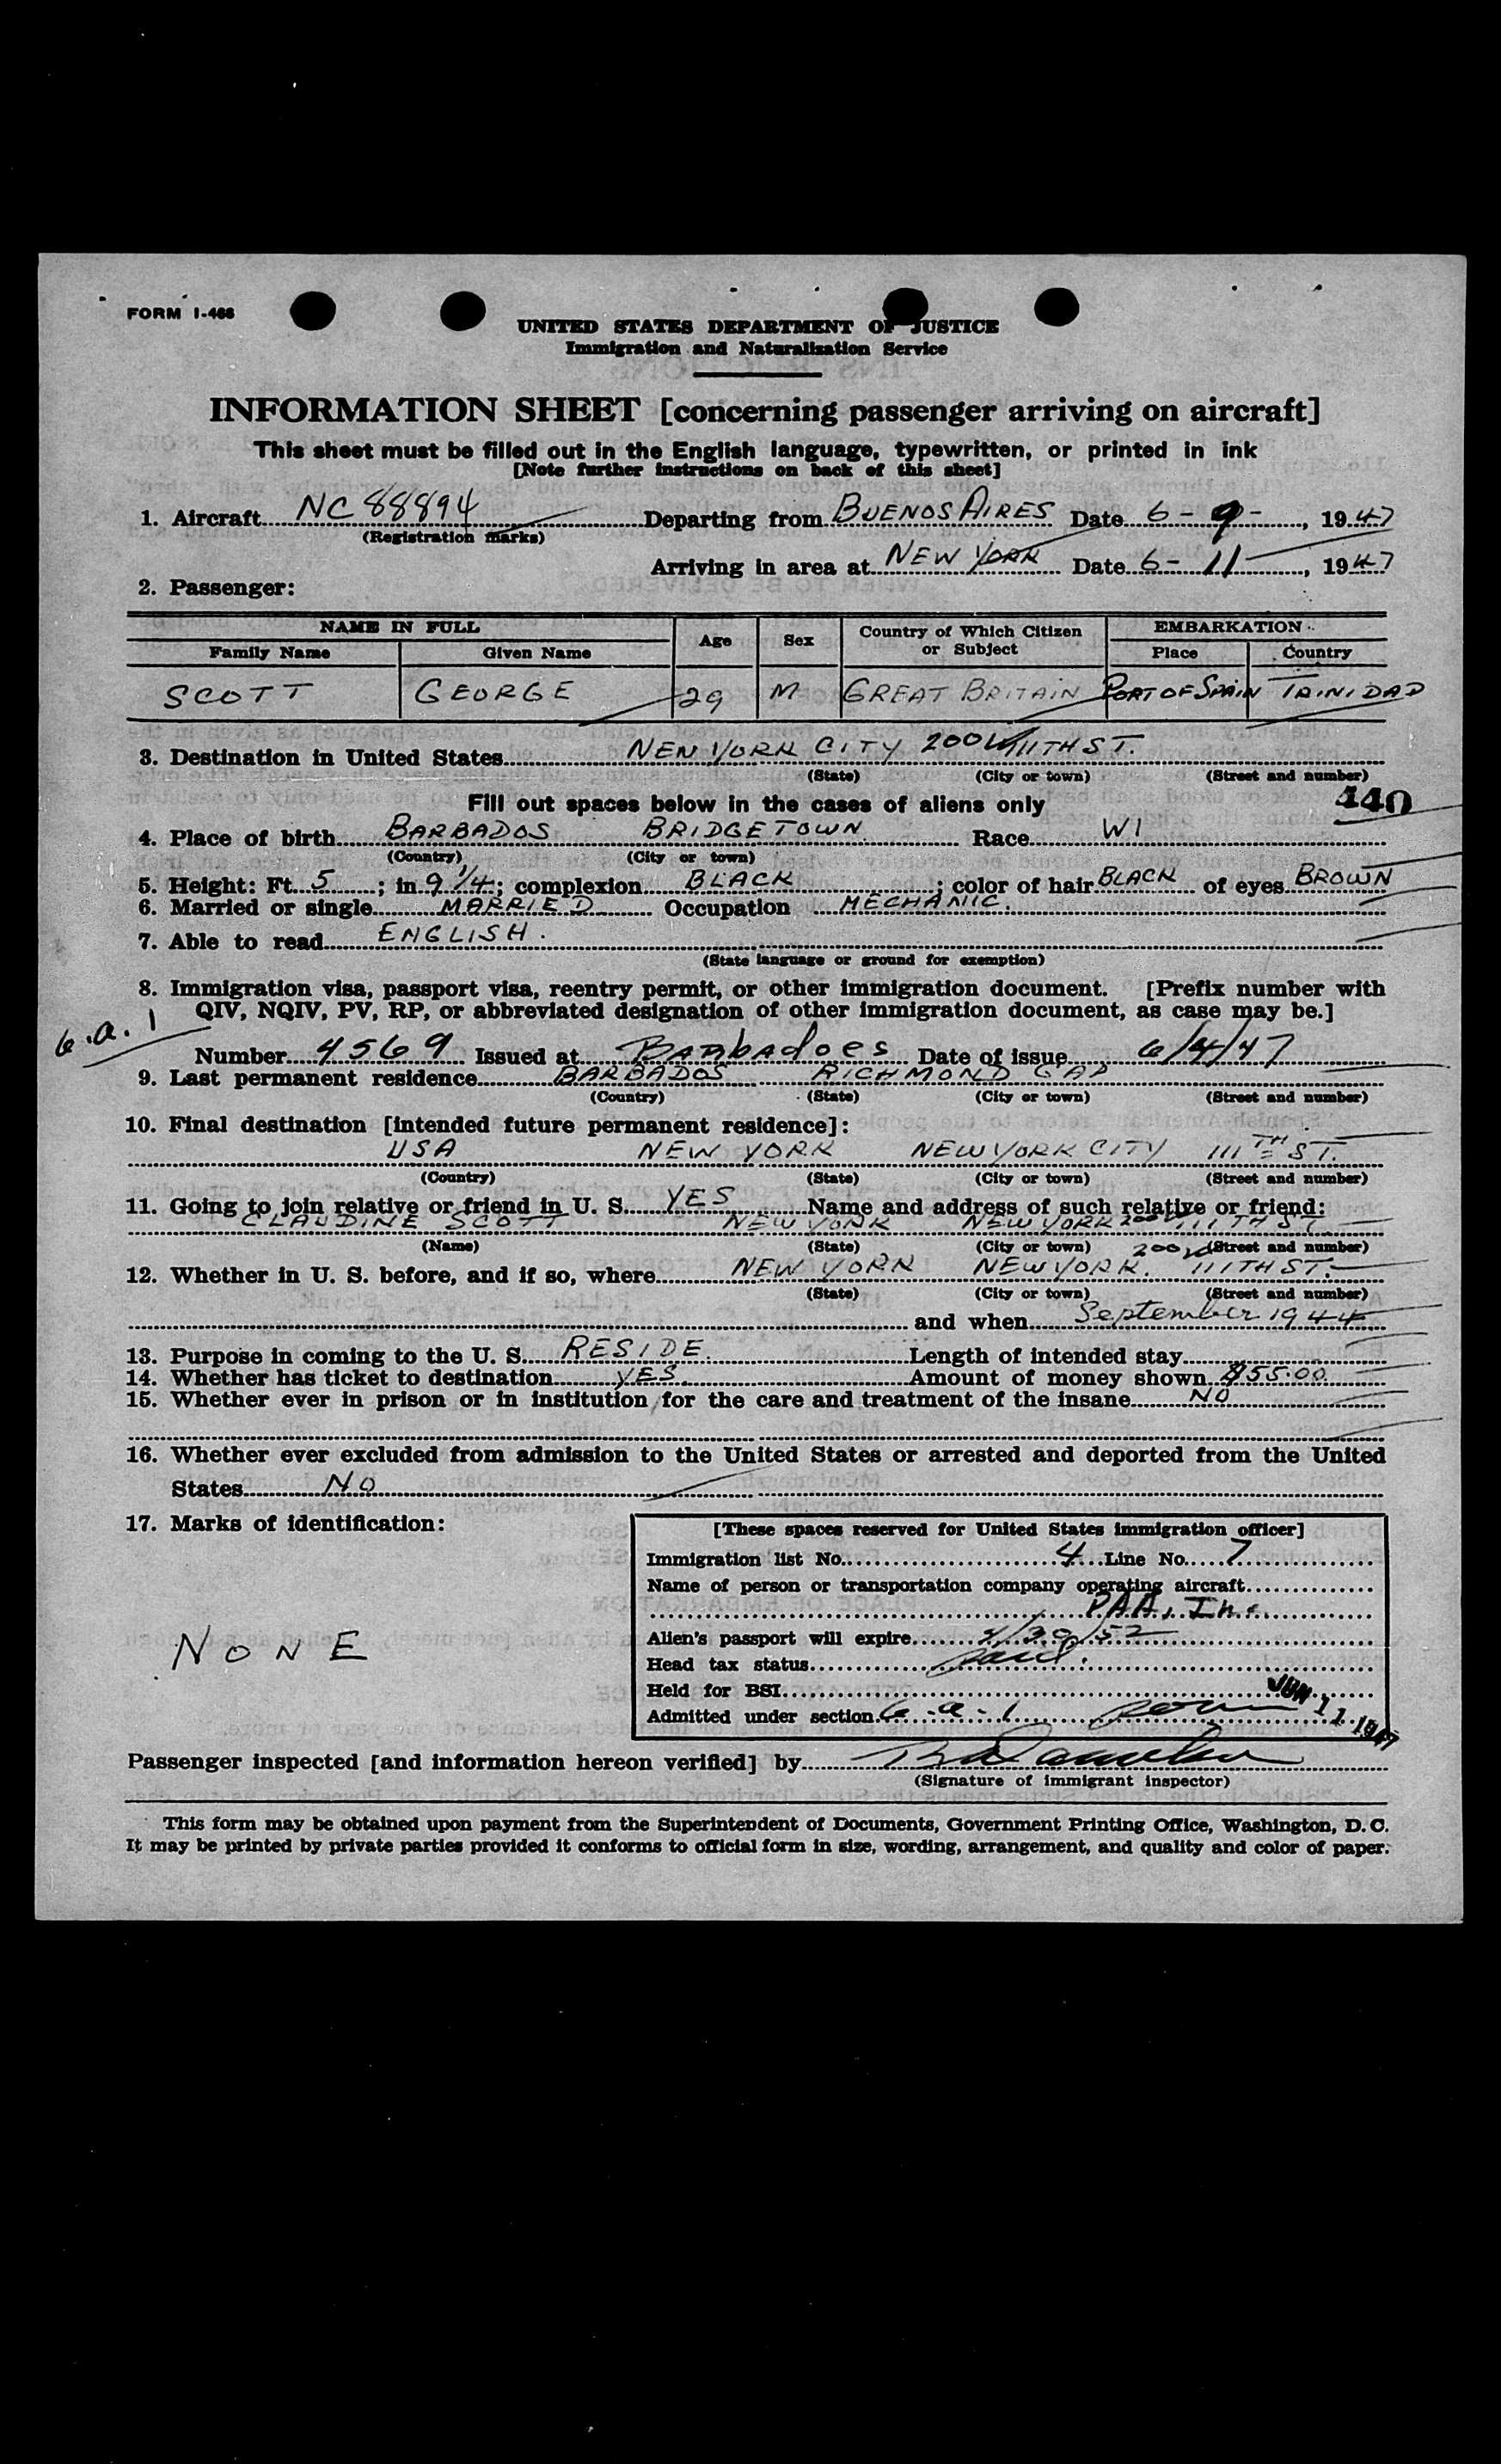 FORM I-466
UNITED STATES DEPARTMENT OF JUSTICE
Immigration and Naturalization Service
INFORMATION SHEET [concerning passenger arriving on aircraft]
This sheet must be filled out in the English language, typewritten, or printed in ink
[Note further instructions on back of this sheet]
1. Aircraft NC 88894 Departing from BUENOS AIRES Date 6-9-, 1947
(Registration marks)
Arriving in area at NEW YORK Date 6-11, 1947
2. Passenger:
NAME IN FULL Age Sex Country of Which Citizen or Subject EMBARKATION
Family Name Given Name Place Country
SCOTT GEORGE 29 M GREAT BRITAIN PORT OF SPAIN TRINIDAD
3. Destination in United States NEW YORK CITY 200 W 111TH ST.
(State) (City or town) (Street and number)
Fill out spaces below in the cases of aliens only 440
4. Place of birth BARBADOS BRIDGETOWN Race WI
(Country) (City or town)
5. Height: Ft. 5; in 9 1/4; complexion BLACK; color of hair BLACK of eyes BROWN
6. Married or single MARRIED Occupation MECHANIC.
7. Able to read ENGLISH.
(State language or ground for exemption)
8. Immigration visa, passport visa, reentry permit, or other immigration document. [Prefix number with
QIV, NQIV, PV, RP, or abbreviated designation of other immigration document, as case may be.]
6.a.1
Number 4569 Issued at Barbadoes Date of issue 6/4/47
9. Last permanent residence BARBADOS RICHMOND GAP
(Country) (State) (City or town) (Street and number)
10. Final destination [intended future permanent residence]:
USA NEW YORK NEW YORK CITY 111TH ST.
(Country) (State) (City or town) (Street and number)
11. Going to join relative or friend in U. S. YES Name and address of such relative or friend:
CLAUDINE SCOTT NEW YORK NEW YORK 200 W 111TH ST
(Name) (State) (City or town) (Street and number)
12. Whether in U. S. before, and if so, where NEW YORK NEW YORK. 200 W 111TH ST.
(State) (City or town) (Street and number)
and when September 1944
13. Purpose in coming to the U. S. RESIDE. Length of intended stay
14. Whether has ticket to destination YES. Amount of money shown $55.00
15. Whether ever in prison or in institution for the care and treatment of the insane NO
16. Whether ever excluded from admission to the United States or arrested and deported from the United
States NO
17. Marks of identification:
NONE
[These spaces reserved for United States immigration officer]
Immigration list No. 4 Line No. 7
Name of person or transportation company operating aircraft
P.A.A., Inc.
Alien's passport will expire /30/52
Head tax status Paid.
Held for BSI
Admitted under section 6-a-1 JUN 11 1947
Passenger inspected [and information hereon verified] by
(Signature of immigrant inspector)
This form may be obtained upon payment from the Superintendent of Documents, Government Printing Office, Washington, D. C.
It may be printed by private parties provided it conforms to official form in size, wording, arrangement, and quality and color of paper.